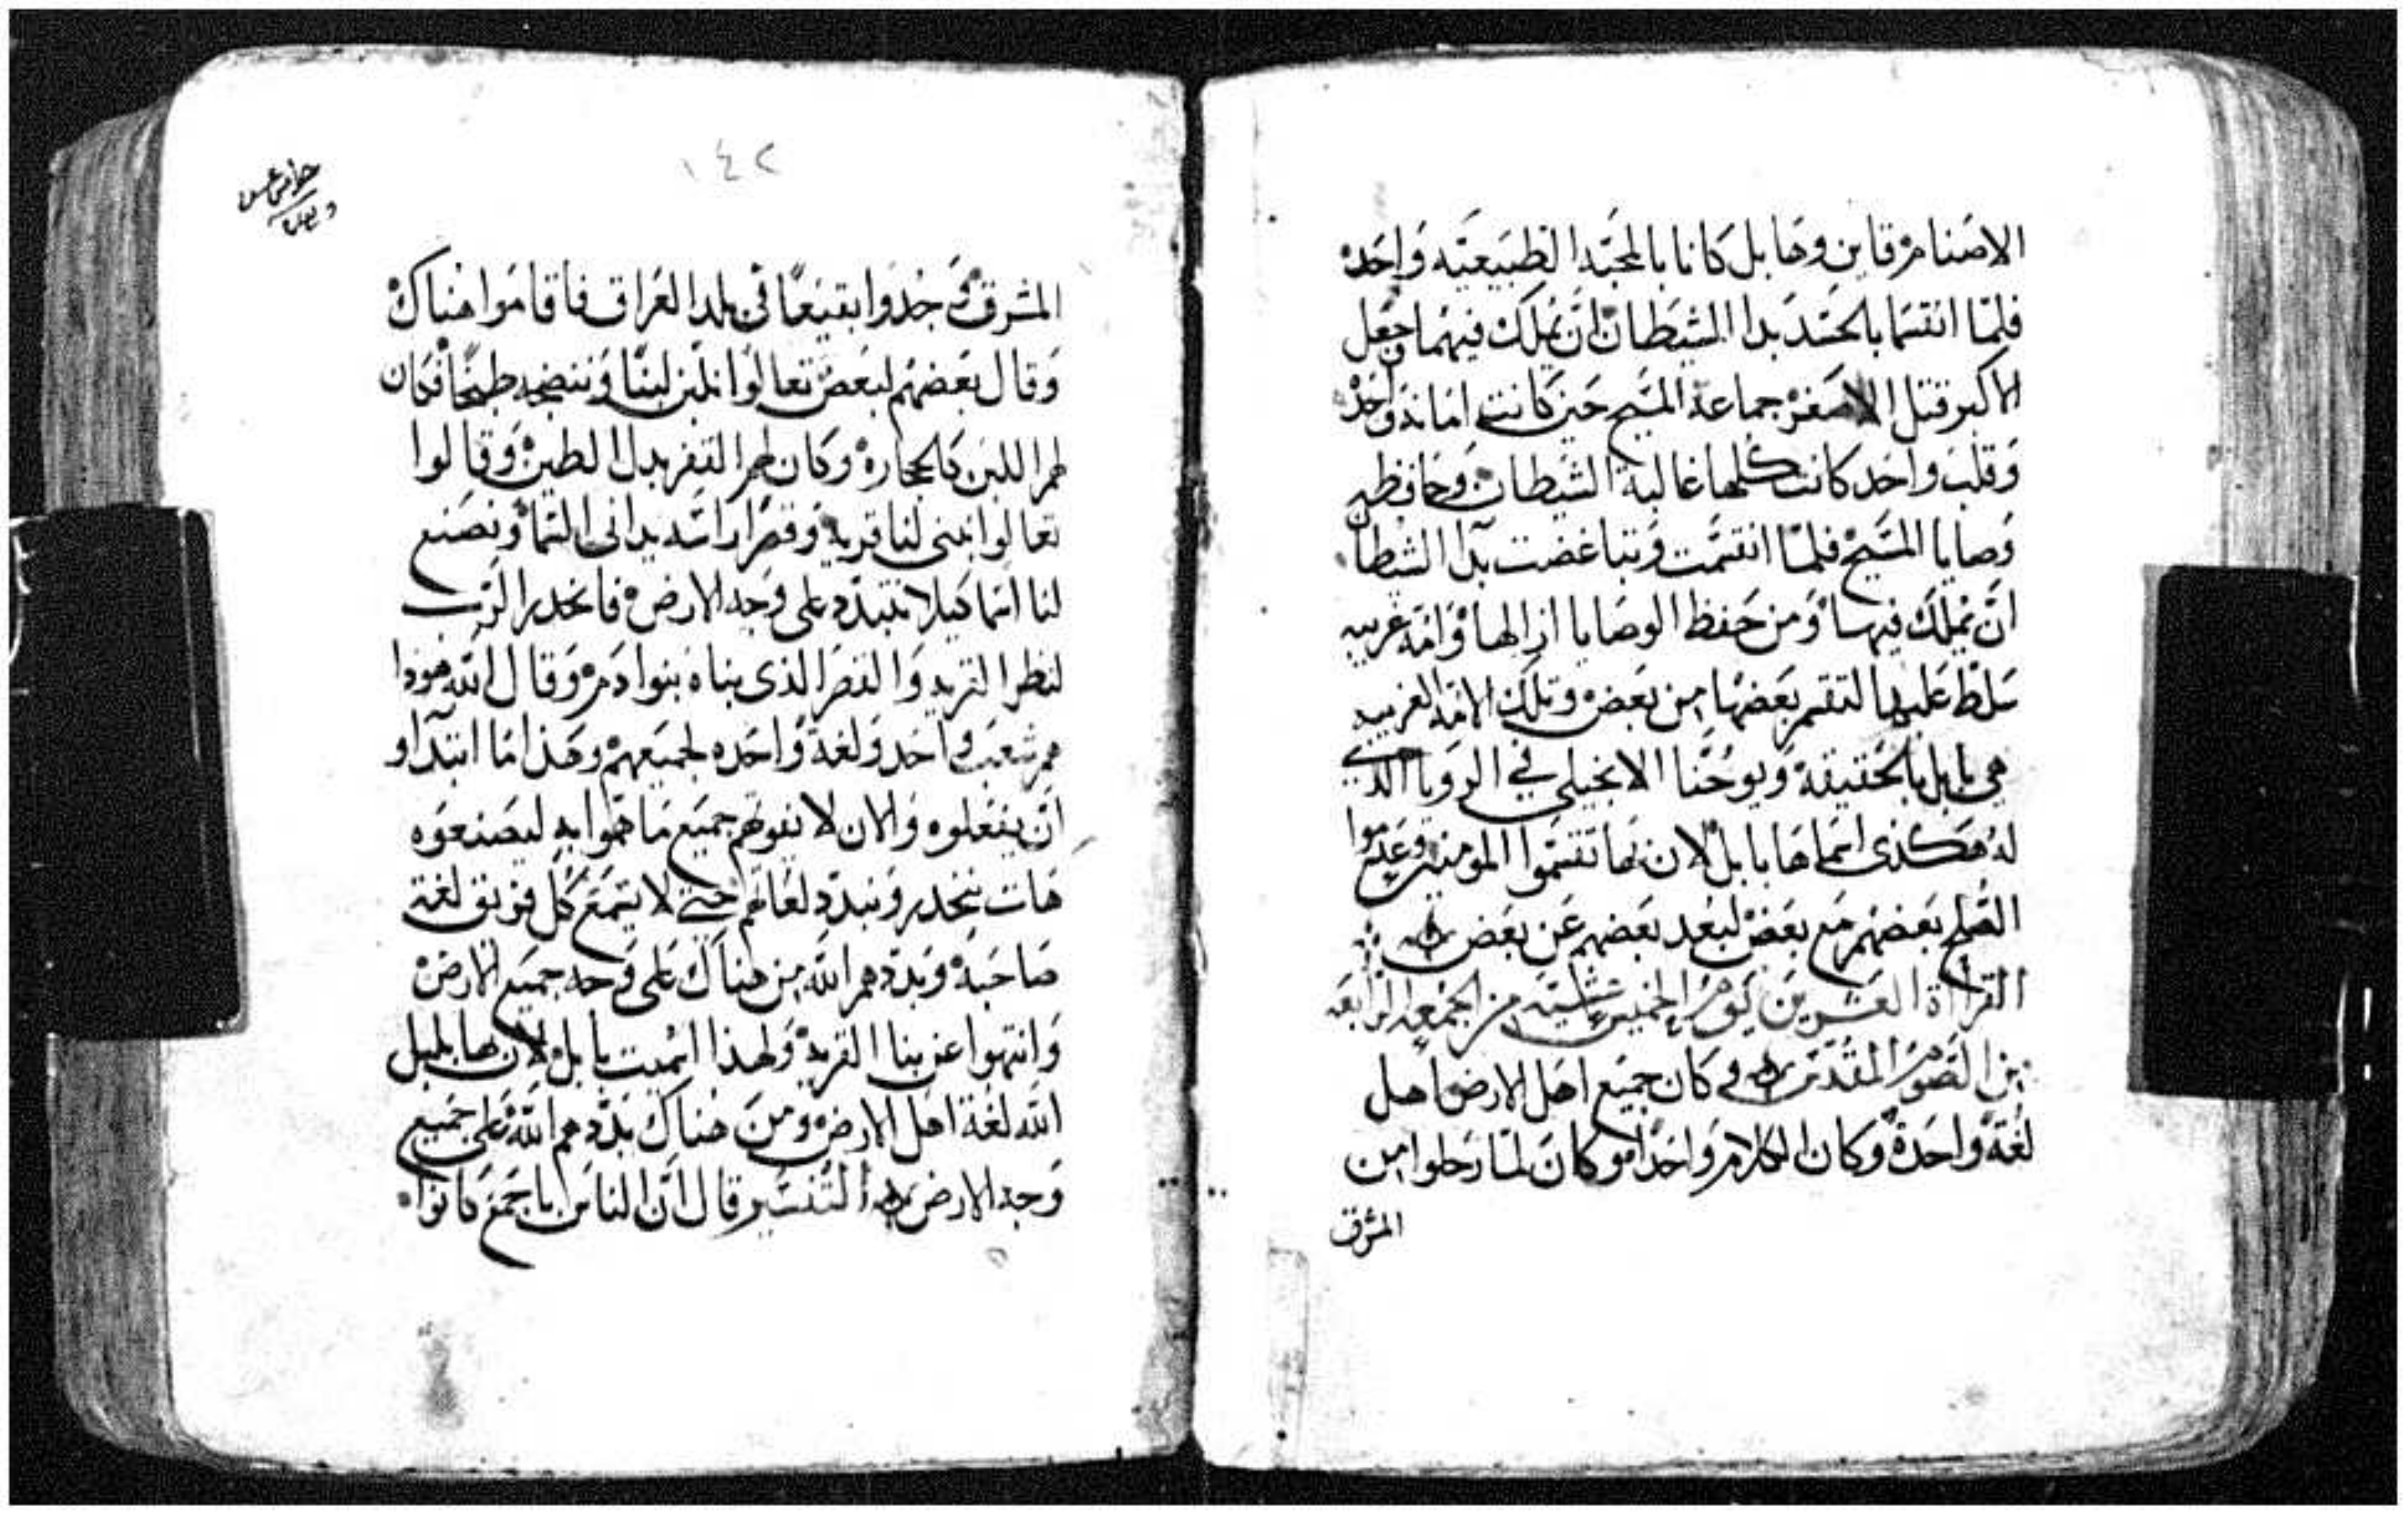 الاصنام قاين وهابل كانا بالمحبه الطبيعيه واحد
فلما انقسما بالحسد بدا الشيطان ان يملك فيهما وجعل
الاكبر قتل الاصغر جماعة المسيح حين كانت امانه واحد
وقلب واحد كانت كلها غالبة الشيطان وحافظه
وصايا المسيح فلما انقسمت وتباغضت بدا الشيطا
ان يملك فيها ومن حفظ الوصايا ازالها وامه غريبه
سلط عليها لتقسم بعضها من بعض وتلك الامه الغريبه
هي بابل بالحقيقة ويوحنا الانجيلي في الرويا الذي
له هكذى اسماها بابل لان بها تقسموا المومنين وعدموا
الصلح بعضهم مع بعض لبعد بعضهم عن بعض
القراة العشرين يوم الخميس عشيه من الجمعه الرابعه
من الصوم المقدس وكان جميع اهل الارض اهل
لغة واحدة وكان الكلام واحدا وكان لما رحلوا من
المشرق
١٤٢
المشرق وجدوا بقيعًا في بلد العراق فاقاموا هناك
وقال بعضهم لبعض تعالوا نلبن لبنًا وننضجه طبخًا فكان
لهم اللبن كالحجارة وكان لهم القفر بدل الطين وقالوا
تعالوا نبني لنا قريه وقصرًا راسه يدانى السما ونصنع
لنا اسما كيلا نتبدد على وجه الارض فانحدر الرب
لنظر القريه والقصر الذى بناه بنوا دم وقال الله هوذا
هم شعب واحد ولغة واحده لجميعهم وهذا ما ابتداو
ان يفعلوه والان لا يفوتهم جميع ما هموا به ليصنعوه
هات ننحدر ونبدد لغاتهم حتى لا يسمع كل فريق لغة
صاحبه وبددهم الله من هناك على وجه جميع الارض
وانتهوا عن بنا القريه ولهذا اسميت بابل لان بها بلبل
الله لغة اهل الارض ومن هناك بددهم الله على جميع
وجه الارض التفسير قال ان الناس باجمع كانوا